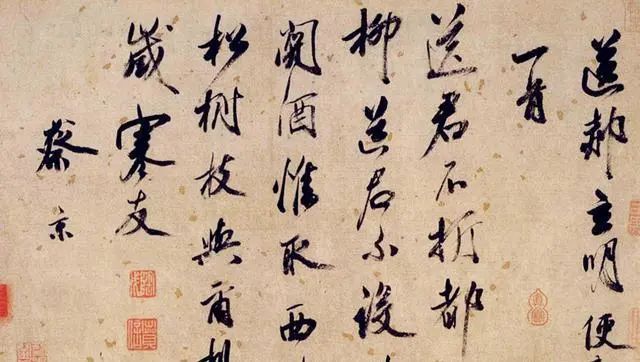 送郝玄明使
一首
送君不折都
柳送君不設
關酒惟取西
松樹枝與爾
歲寒友
蔡京